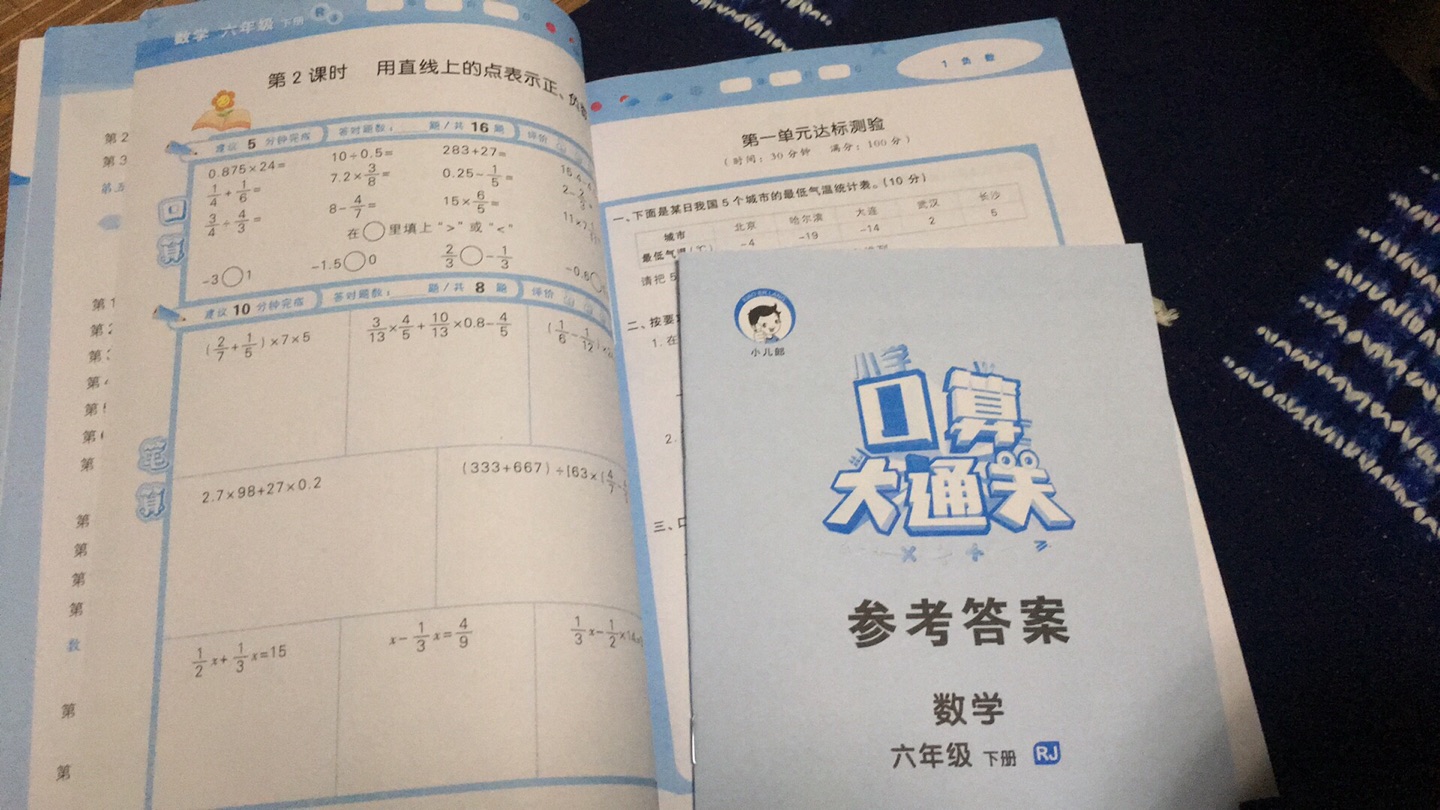 数学 六年级 下册 RJ
第2课时 用直线上的点表示正、负
建议 5 分钟完成 答对题数：____题/共 16 题 评价
口算
0.875×24= 10÷0.5= 283+27=
1/4+1/6= 7.2×3/8= 0.25-1/5=
3/4÷4/3= 8-4/7= 15×6/5=
在○里填上“>”或“<”
-3○1 -1.5○0 2/3○-1/3
建议 10 分钟完成 答对题数：____题/共 8 题 评价
笔算
(2/7+1/5)×7×5 3/13×4/5+10/13×0.8-4/5 (1/6-1/12)×
2.7×98+27×0.2 (333+667)÷[63×(4/7-
1/2x+1/3x=15 x-1/3x=4/9 1/3x-1/2×14
第2
第3
第五
第1
第2
第3
第4
第5
第6
第
第
第
第
第
数
第
第
1 负数
第一单元达标测验
（时间：30分钟 满分：100分）
一、下面是某日我国5个城市的最低气温统计表。（10分）
城市 北京 哈尔滨 大连 武汉 长沙
最低气温(℃) -4 -19 -14 2 5
请把5
二、按要
1.在
2.
三、口
XIAO ER LANG
小儿郎
小学
口算
大通关
参考答案
数学
六年级 下册 RJ